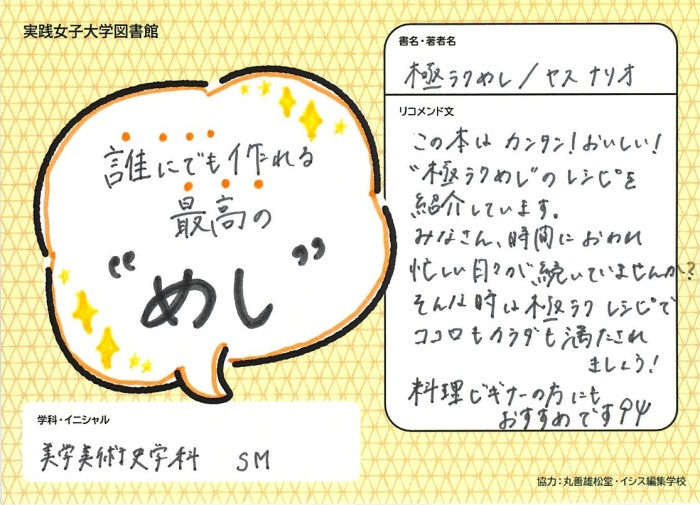 実践女子大学図書館
誰にでも作れる
最高の
“めし”
学科・イニシャル
美学美術史学科 SM
書名・著者名
極ラクめし/ヤスナリオ
リコメンド文
この本はカンタン!おいしい!
"極ラクめし"のレシピを
紹介しています。
みなさん、時間におわれ
忙しい日々が続いていませんか?
そんな時は極ラクレシピで
ココロもカラダも満たされ
ましょう!
料理ビギナーの方にも
おすすめです
協力:丸善雄松堂・イシス編集学校